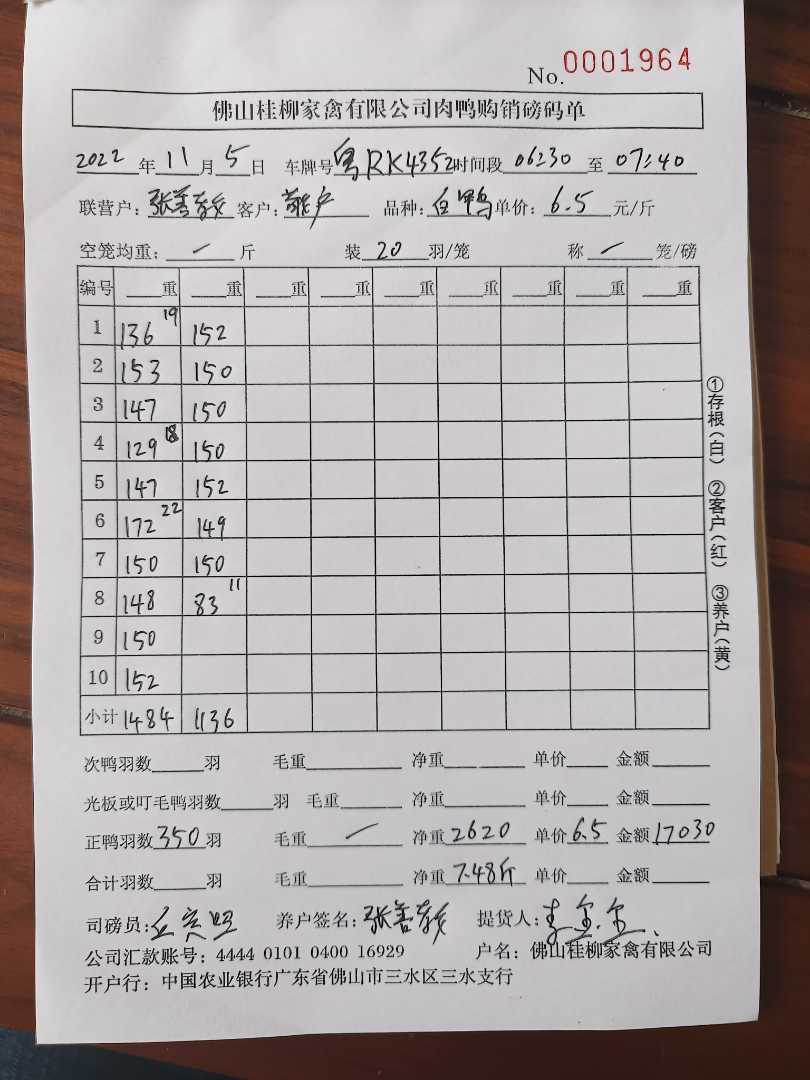 No. 0001964
佛山桂柳家禽有限公司肉鸭购销磅码单
2022 年 11 月 5 日 车牌号 粤RK4352 时间段 06:30 至 07:40
联营户: 张善 客户: 散户 品种: 白鸭 单价: 6.5 元/斤
空笼均重: 一 斤 装 20 羽/笼 称 一 笼/磅
编号 重 重 重 重 重 重 重 重 重
1 136 19 152
2 153 150
3 147 150
4 129 18 150
5 147 152
6 172 22 149
7 150 150
8 148 83 11
9 150
10 152
小计 1484 1136
次鸭羽数 羽 毛重 净重 单价 金额
光板或叮毛鸭羽数 羽 毛重 净重 单价 金额
正鸭羽数 350 羽 毛重 一 净重 2620 单价 6.5 金额 17030
合计羽数 羽 毛重 净重 7.48斤 单价 金额
司磅员: 养户签名: 张善 提货人: 李
公司汇款账号: 4444 0101 0400 16929 户名: 佛山桂柳家禽有限公司
开户行: 中国农业银行广东省佛山市三水区三水支行
①存根(白) ②客户(红) ③养户(黄)